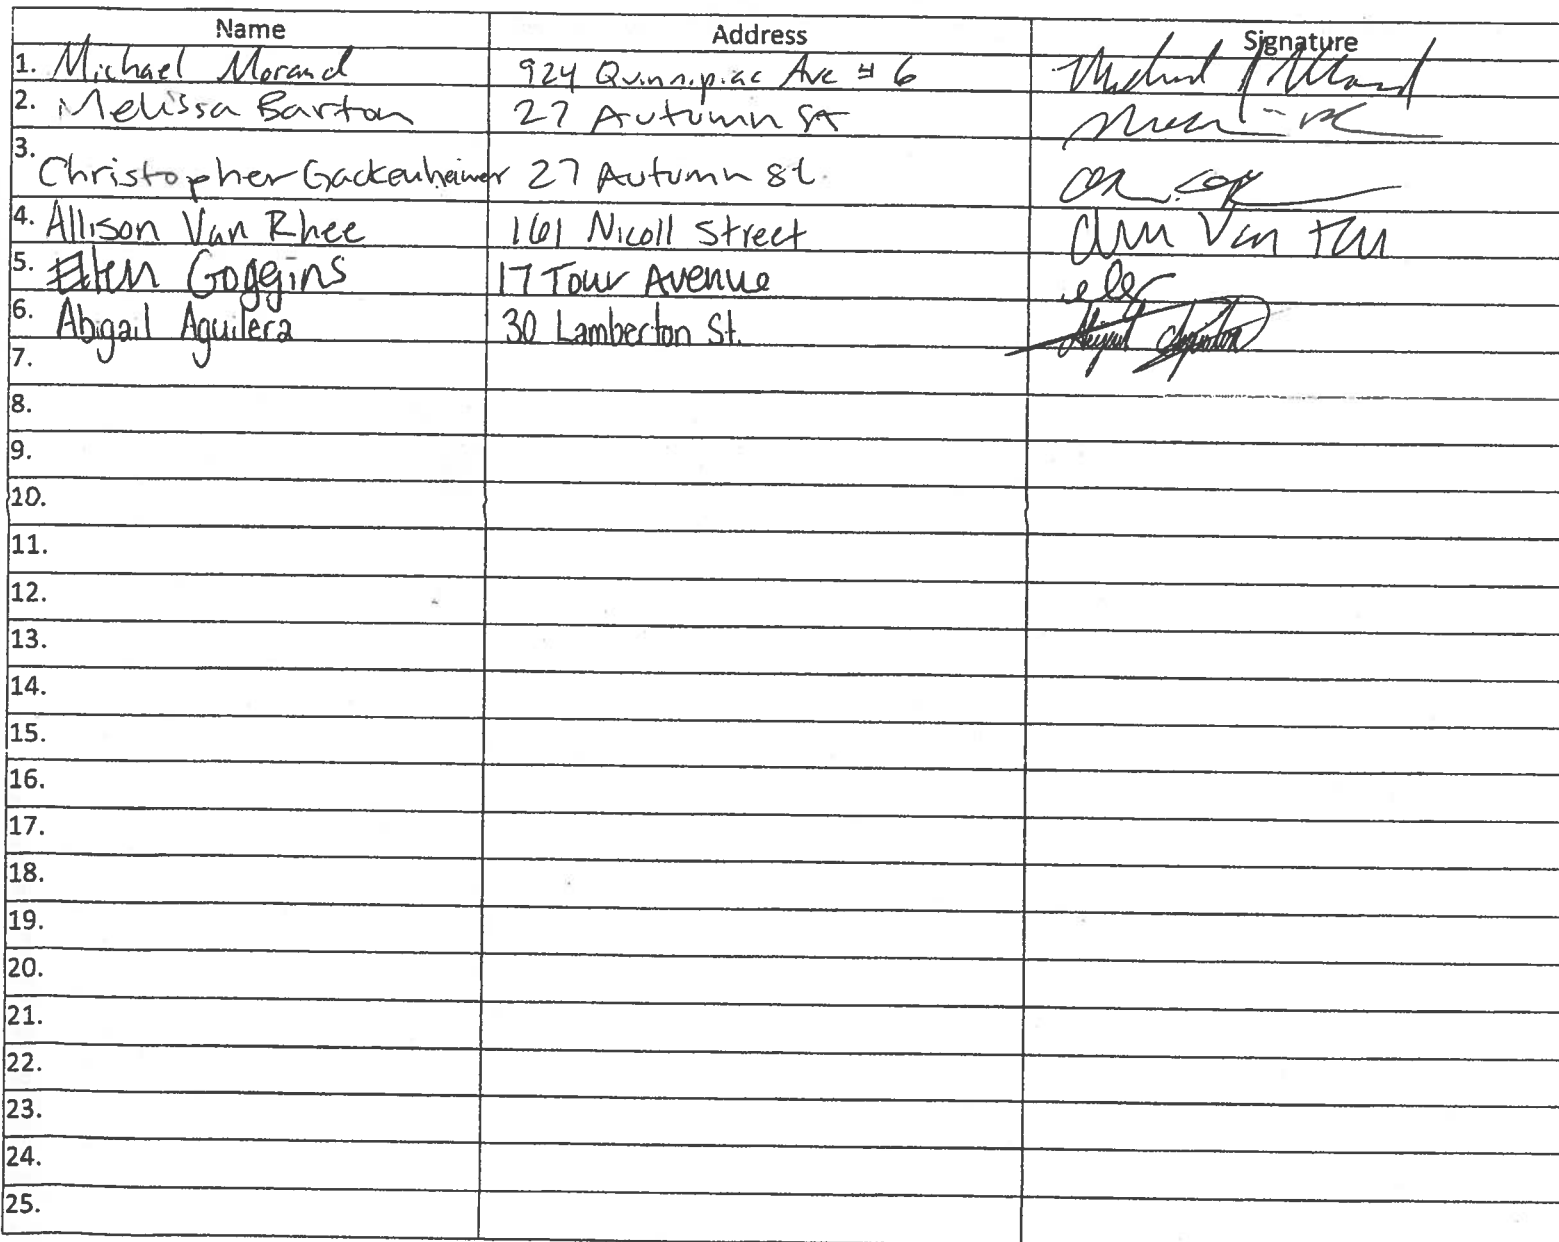 Name Address Signature
1. Michael Morand 924 Quinnipiac Ave # 6
2. Melissa Barton 27 Autumn St
3. Christopher Gackenheimer 27 Autumn St.
4. Allison Van Rhee 161 Nicoll Street
5. Ellen Goggins 17 Tour Avenue
6. Abigail Aguilera 30 Lamberton St.
7.
8.
9.
10.
11.
12.
13.
14.
15.
16.
17.
18.
19.
20.
21.
22.
23.
24.
25.